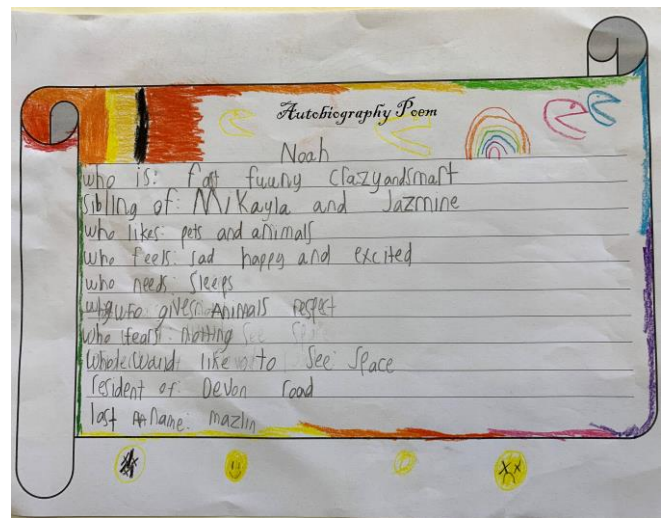 Autobiography Poem
Noah
who is: fast fuuny crazyandsmart
Sibling of: MiKayla and Jazmine
who likes: pets and animals
who feels: sad happy and excited
who needs: sleeps
who gives: ANimals respect
who fears: Notting
like to see space
resident of: Devon road
last name: mazlin